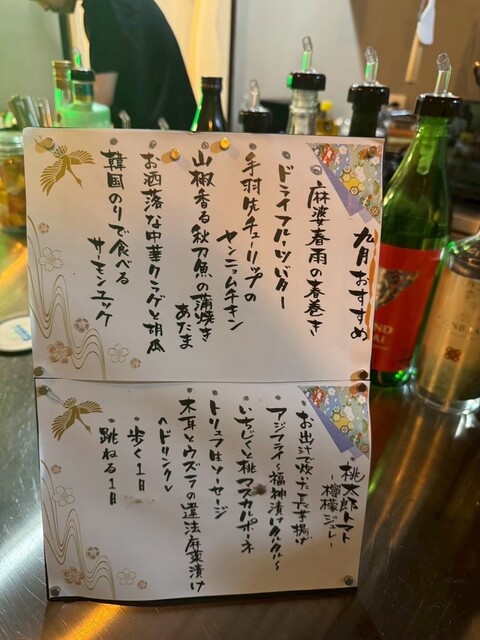 九月おすすめ
・麻婆春雨の春巻き
・ドライフルーツバター
・手羽先チューリップの
ヤンニョムチキン
・山椒香る秋刀魚の蒲焼き
あたま
・お洒落な中華クラゲと胡瓜
・韓国のりで食べる
サーモンユッケ
・桃太郎トマト
〜檸檬ジュレ〜
・お出汁で炊いた長芋揚げ
・アジフライ〜福神漬けタルタル〜
・いちじくと桃マスカルポーネ
・トリュフ生ソーセージ
・木耳とウズラの違法麻薬漬け
<ドリンク>
・歩く1日
・跳ねる1日